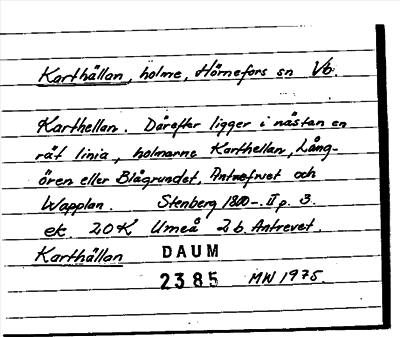 Karthällan, holme, Hörnefors sn Vb.
Karthellan. Därefter ligger i nästan en
rät linia, holmarne Karthellan, Lång-
ören eller Blågrundet, Antrefvet och
Wapplan. Stenberg 1800-. II p. 3.
ek. 20K Umeå 2b. Antrevet.
Karthällan DAUM
2385 MW 1975.